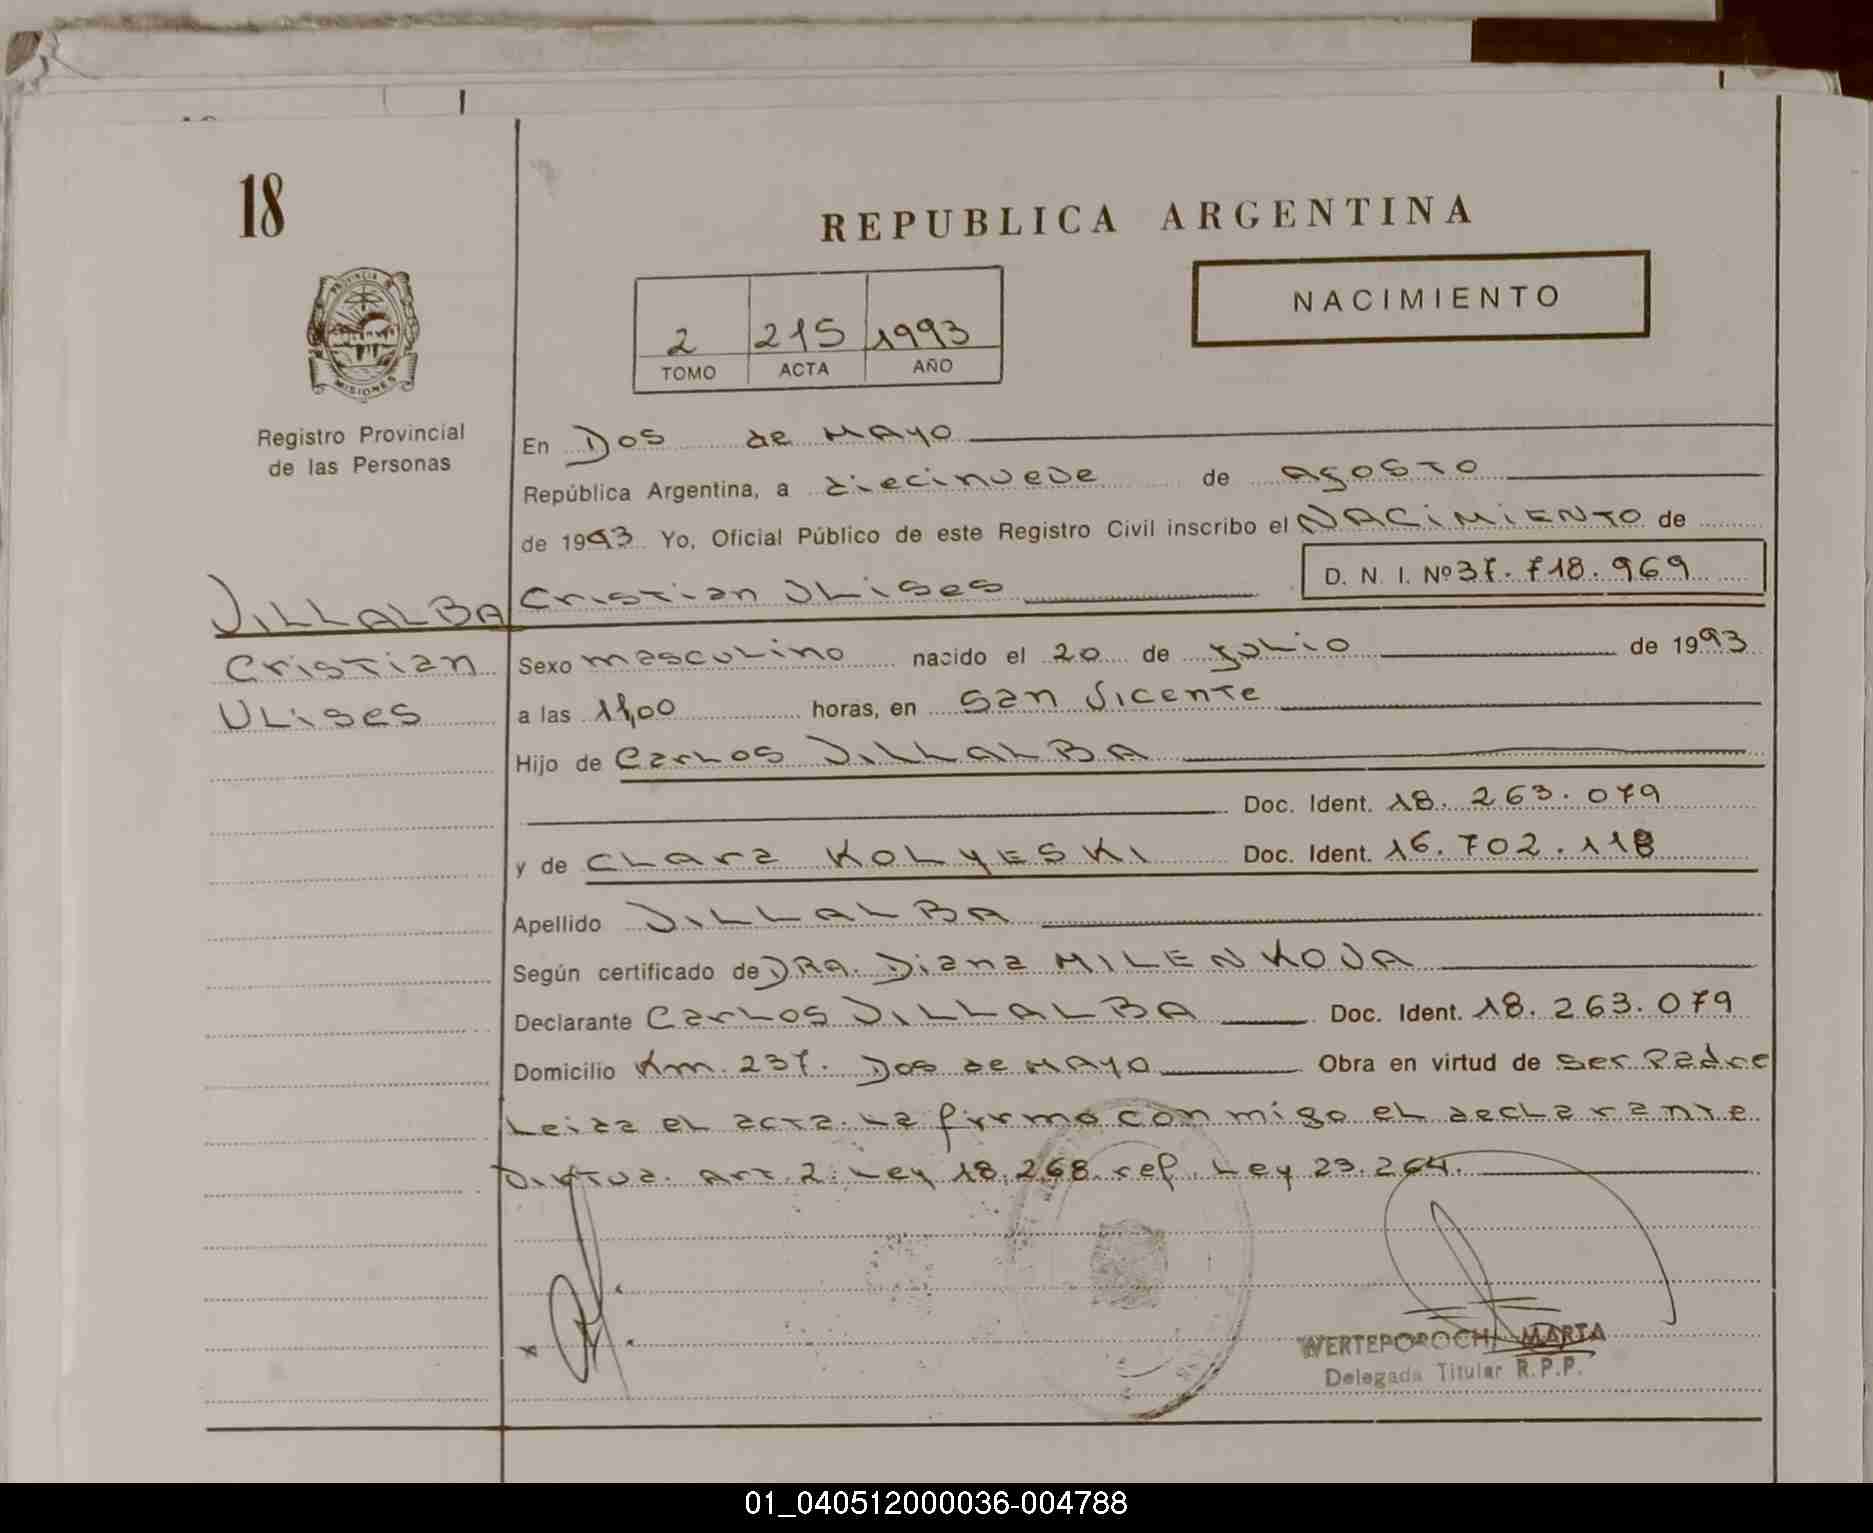 18
REPUBLICA ARGENTINA
PROVINCIA DE
MISIONES
NACIMIENTO
2 215 1993
TOMO ACTA AÑO
Registro Provincial
de las Personas
En Dos de MAYO
República Argentina, a diecinueve de AGOSTO
de 1993 Yo, Oficial Público de este Registro Civil inscribo el NACIMIENTO de
D. N. I. Nº 37.718.969
VILLALBA Cristian ULises
Cristian
ULises
Sexo masculino nacido el 20 de JuLio de 1993
a las 11,00 horas, en San Vicente
Hijo de Carlos VILLALBA
Doc. Ident. 18.263.079
y de CLara KOLYESKI Doc. Ident. 16.702.118
Apellido VILLALBA
Según certificado de DRA. Diana MILENKOVA
Declarante Carlos VILLALBA Doc. Ident. 18.263.079
Domicilio Km. 237. Dos de MAYO Obra en virtud de ser Padre
Leida el acta La firma conmigo el declarante
Art. 2. Ley 18.268. ref. Ley 23.264.
WERTEPOROCH MARTA
Delegada Titular R.P.P.
01_040512000036-004788